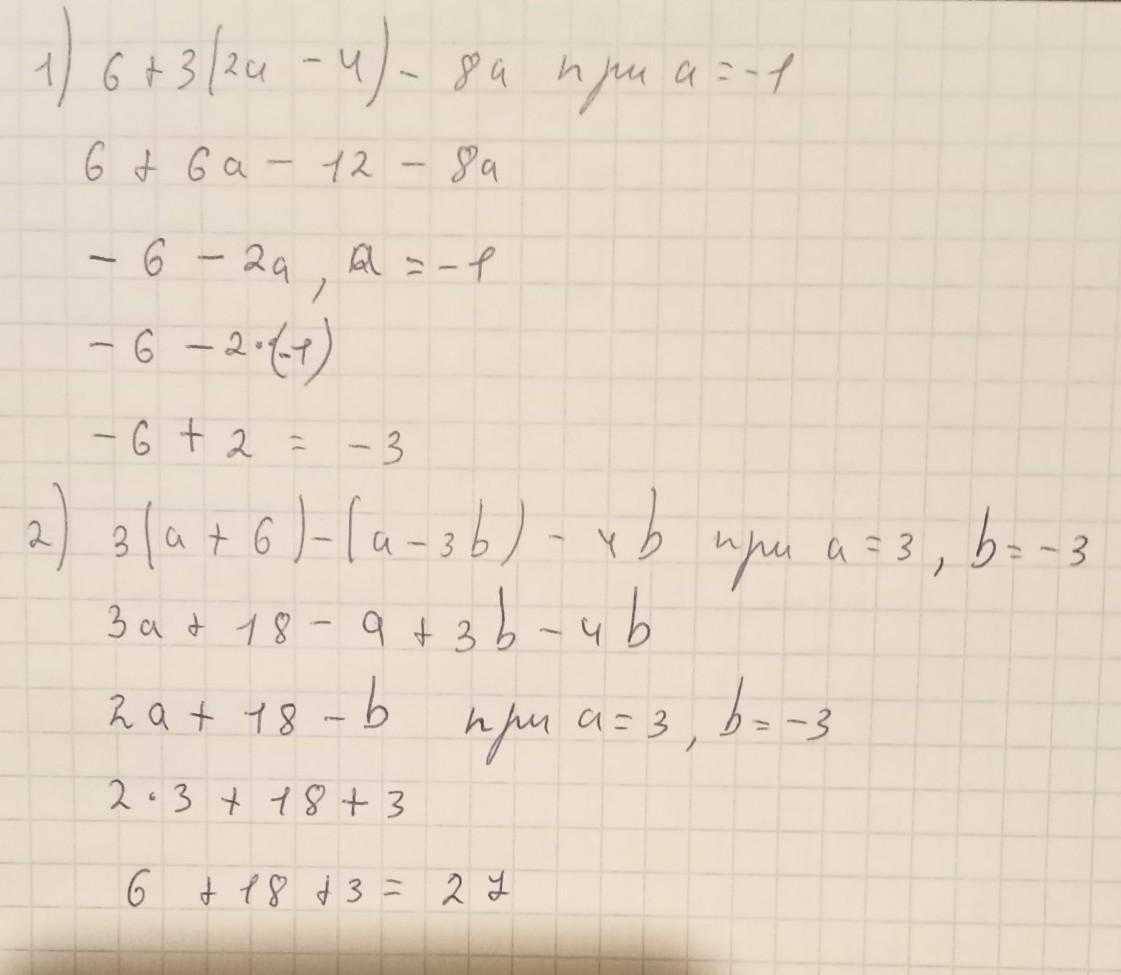 1) 6 + 3(2a - 4) - 8a при a = -1
6 + 6a - 12 - 8a
- 6 - 2a, a = -1
- 6 - 2·(-1)
- 6 + 2 = - 3
2) 3(a + 6) - (a - 3b) - 4b при a = 3, b = -3
3a + 18 - a + 3b - 4b
2a + 18 - b при a = 3, b = -3
2·3 + 18 + 3
6 + 18 + 3 = 27